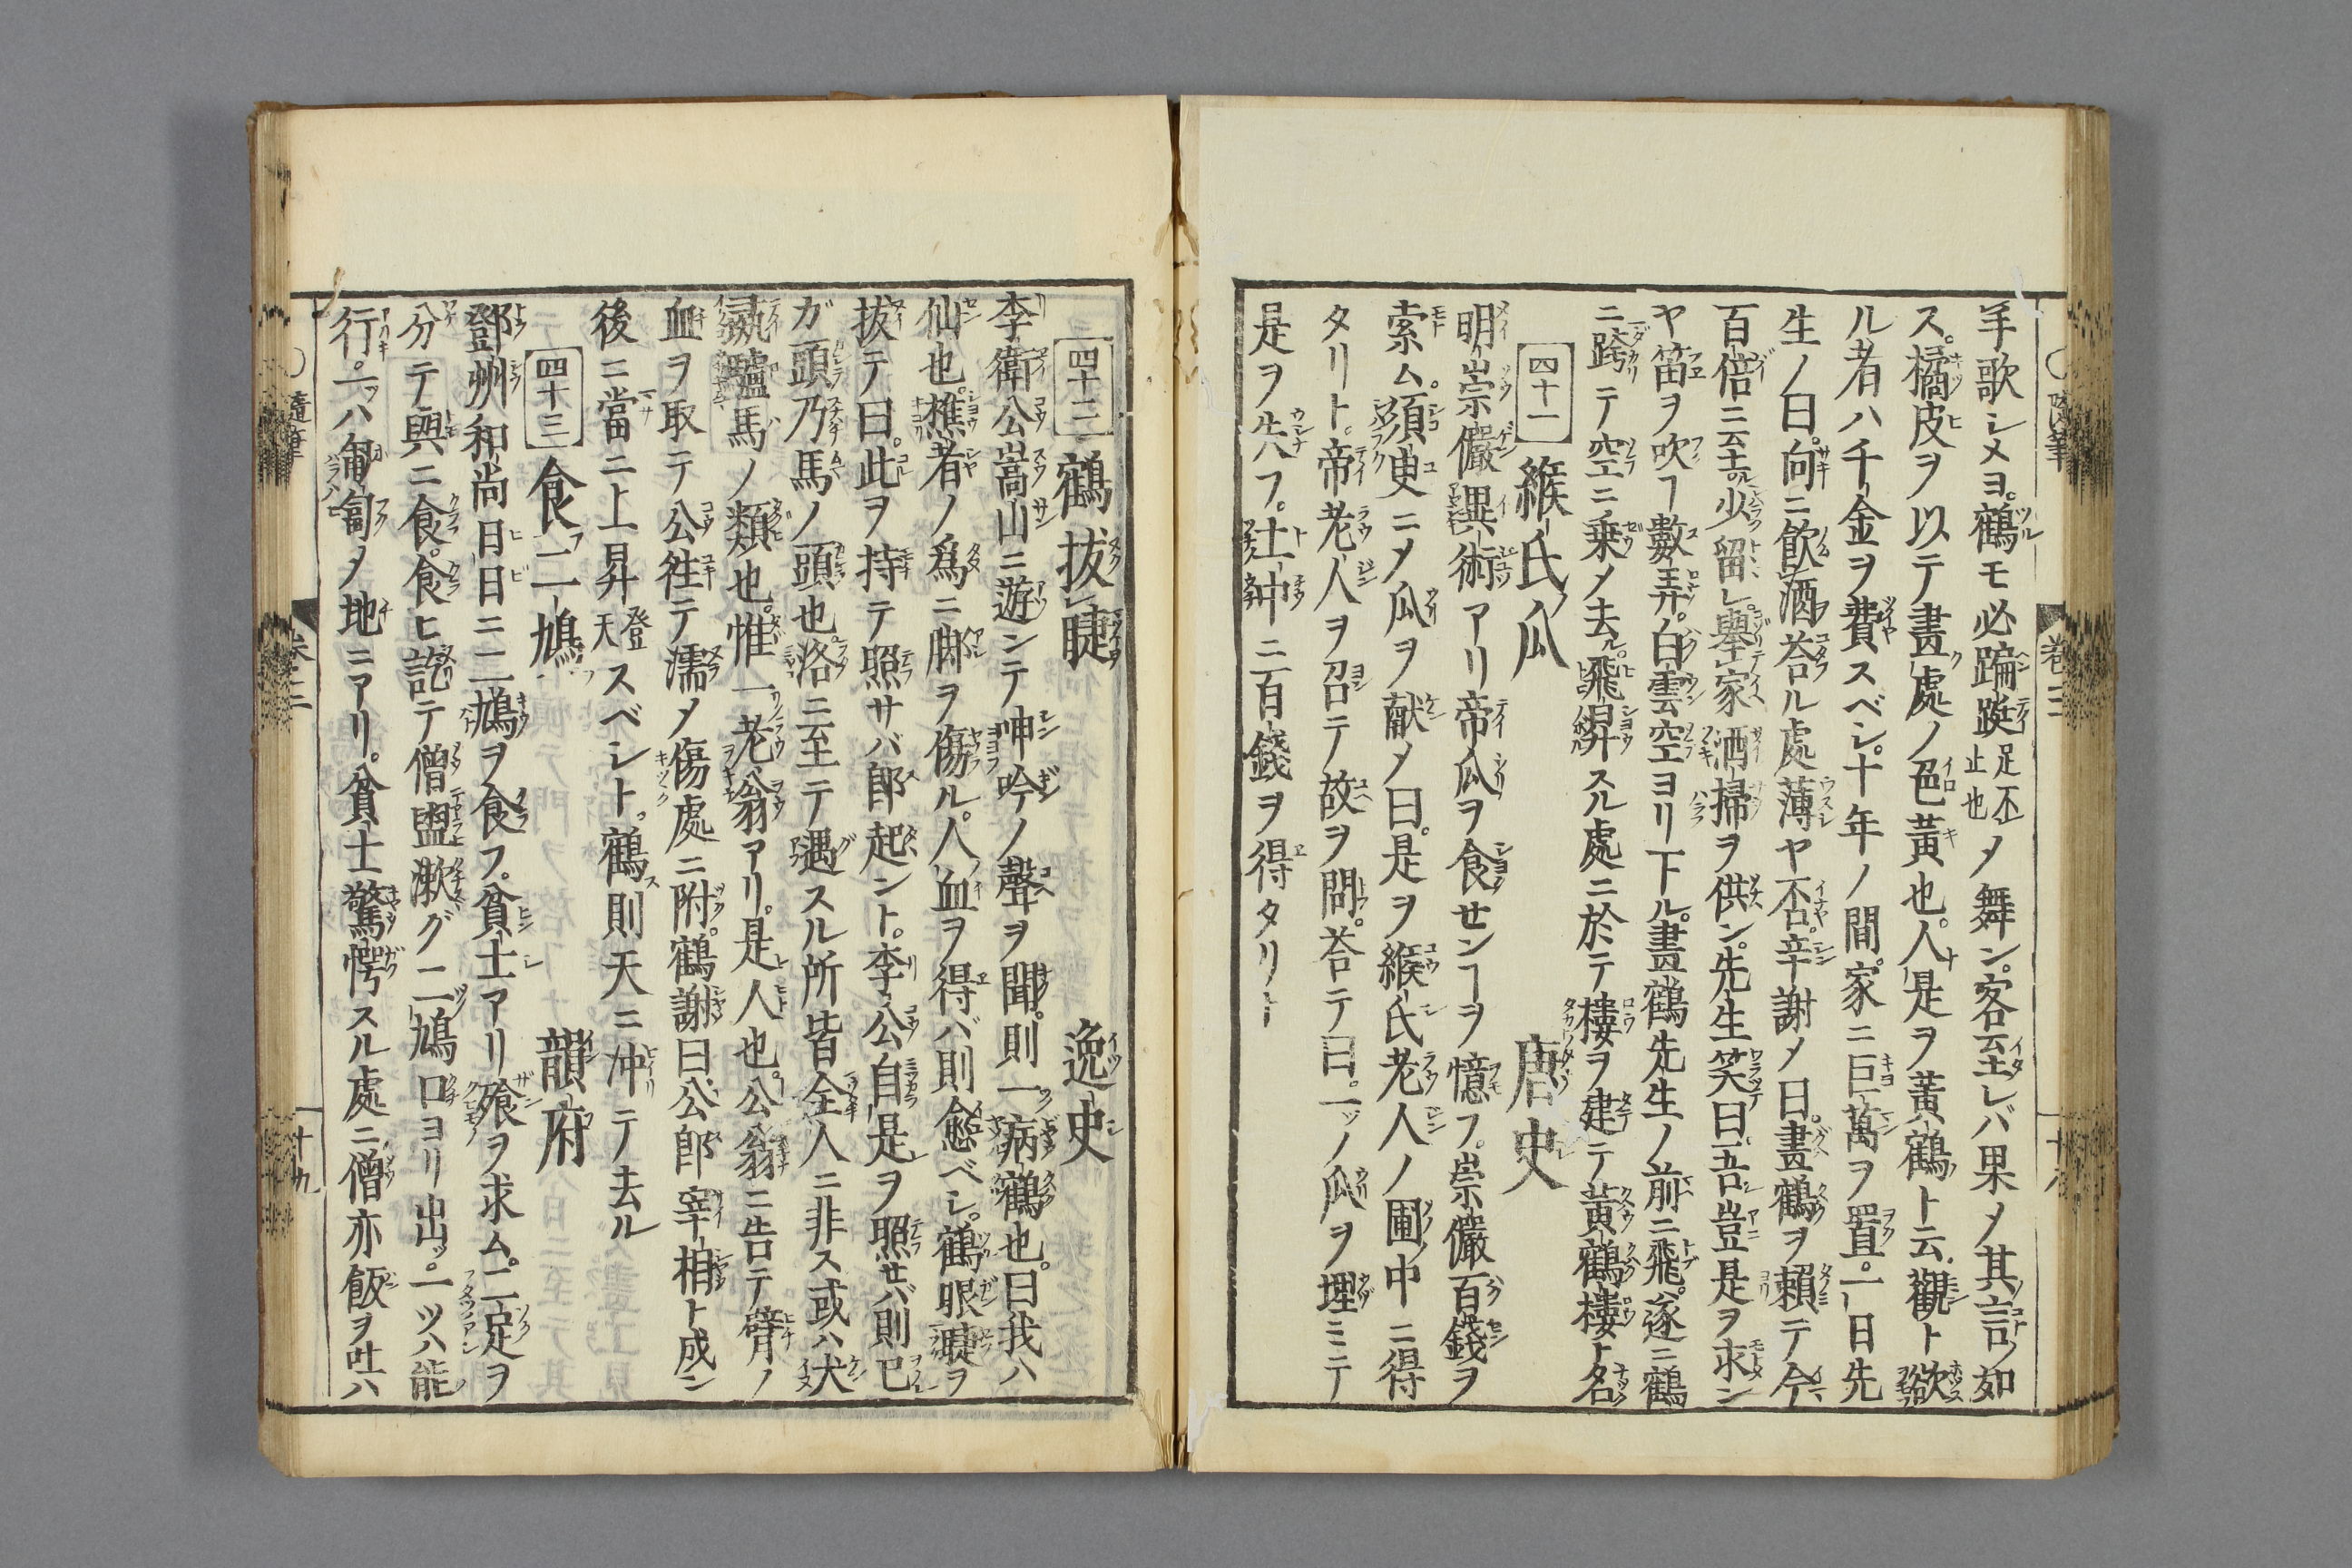 手歌シメヨ。鶴モ必蹁躚足不止也メ舞ン。客至レバ果メ其言ノ如
ス。橘皮ヲ以テ畫處ノ色黃也。人是ヲ黃鶴ト云。觀ト欲
ル者ハ千金ヲ費スベシ。十年ノ間。家ニ巨萬ヲ置。一日先
生ノ曰。向ニ飲酒荅ル處薄ヤ否。辛謝メ曰。畫鶴ヲ賴テ今
百倍ニ至ル少留レ。舉家洒掃ヲ供ン。先生笑曰。吾豈是ヲ求ン
ヤ笛ヲ吹ヿ數弄。白雲空ヨリ下ル。畫鶴先生ノ前ニ飛。遂ニ鶴
ニ跨テ空ニ乗メ去ル。飛昇スル處ニ於テ樓ヲ建テ黃鶴樓ト名
四十一 緱氏瓜 唐史
明崇儼異術アリ帝瓜ヲ食センヿヲ憶フ。崇儼百錢ヲ
索ム。須臾ニメ瓜ヲ献メ曰。是ヲ緱氏老人ノ圃中ニ得
タリト。帝老人ヲ召テ故ヲ問。荅テ曰。一ツノ瓜ヲ埋ミテ
是ヲ失フ。土中ニ百錢ヲ得タリト
四十二 鶴拔睫 逸史
李衛公嵩山ニ遊ンテ呻吟ノ聲ヲ聞。則一病鶴也。曰我ハ
仙也。樵者ノ爲ニ脚ヲ傷ル。人血ヲ得バ則愈ベシ。鶴眼睫ヲ
拔テ曰。此ヲ持テ照サバ郎起ント。李公自是ヲ照セバ則己
ガ頭乃馬ノ頭也洛ニ至テ遇スル所皆全人ニ非ス或ハ犬
彘驢馬ノ類也。惟一老翁アリ。是人也。公翁ニ告テ臂ノ
血ヲ取テ公徃テ濡メ傷處ニ附。鶴謝曰公郎宰相ト成ン
後ニ當ニ上昇登天スベシト。鶴則天ニ冲テ去ル
四十三 食二鳩 韻府
鄧州和尚日日ニ二鳩ヲ食フ。貧士アリ飱ヲ求ム。二足ヲ
分テ與ニ食。食ヒ訖テ僧盥漱グ二鳩口ヨリ出ッ。一ツハ能
行。一ッハ匍匐メ地ニアリ。貧士驚愕スル處ニ僧亦飯ヲ吐ハ
隨筆 卷二 十九